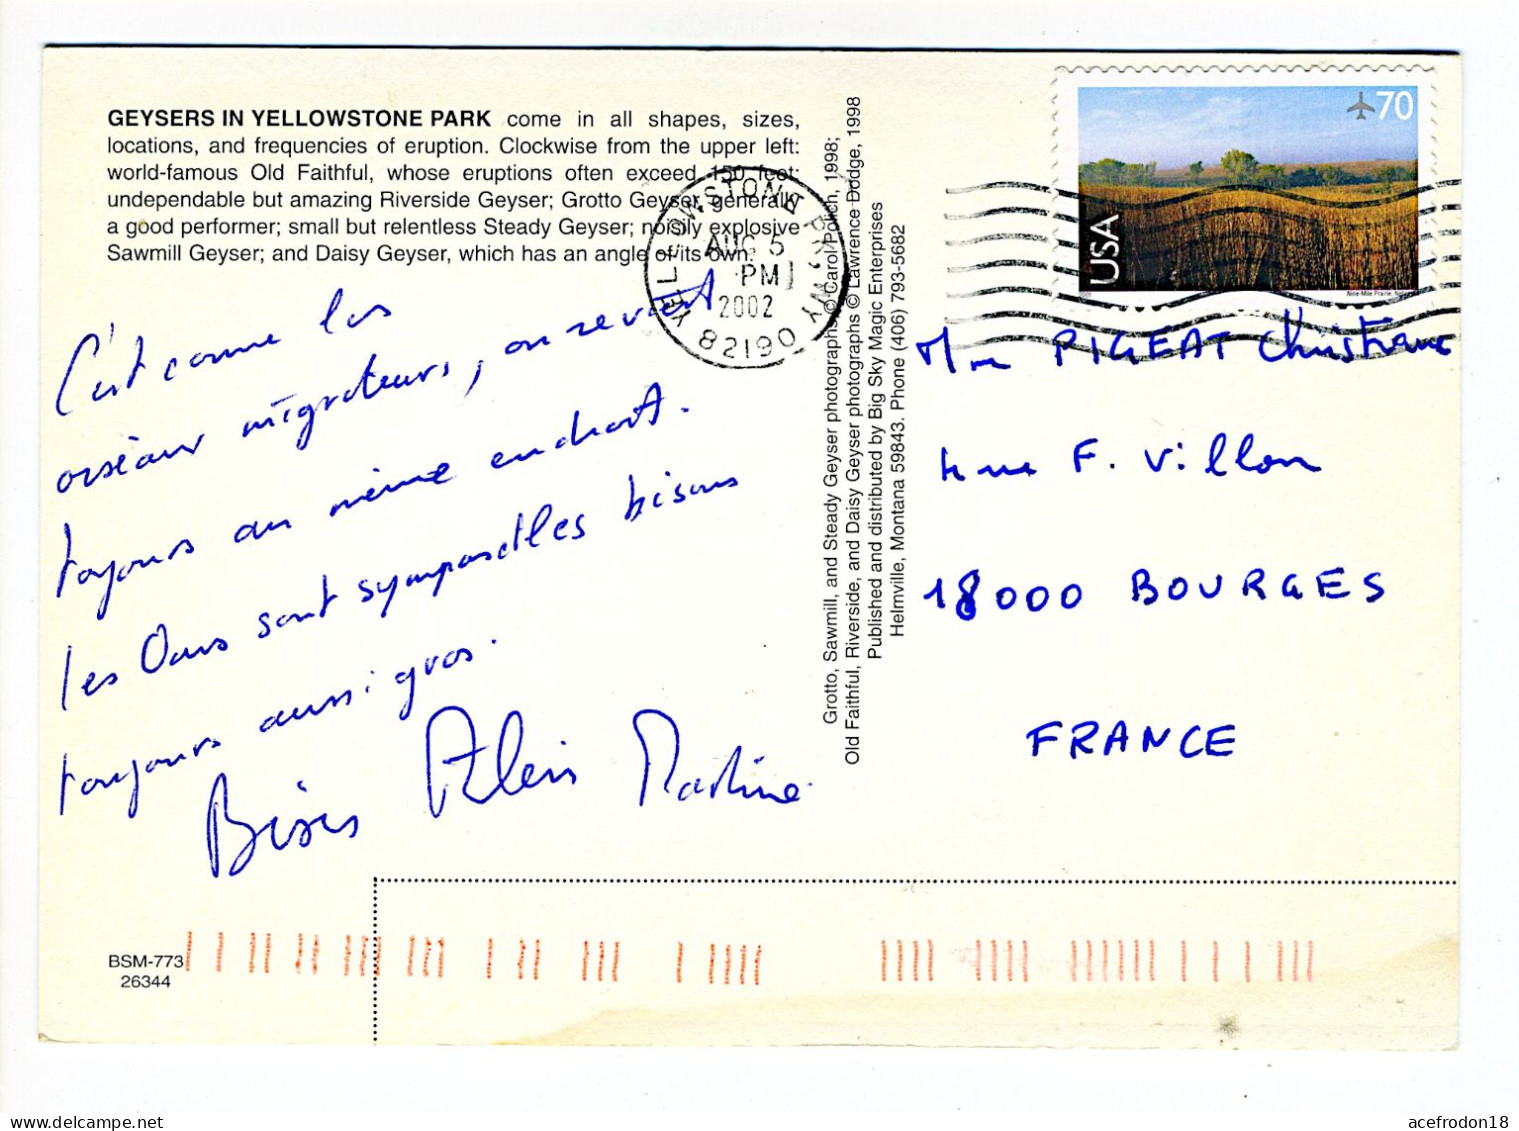 GEYSERS IN YELLOWSTONE PARK come in all shapes, sizes,
locations, and frequencies of eruption. Clockwise from the upper left:
world-famous Old Faithful, whose eruptions often exceed 150 feet;
undependable but amazing Riverside Geyser; Grotto Geyser, generally
a good performer; small but relentless Steady Geyser; noisily explosive
Sawmill Geyser; and Daisy Geyser, which has an angle of its own.
C'est comme les
oiseaux migrateurs, on revient
toujours au même endroit.
les Ours sont sympas et les bisons
toujours aussi gros.
Bises Alain Martine
BSM-773
26344
YELLOWSTONE PK, WY
AUG 5
PM
2002
82190
Grotto, Sawmill, and Steady Geyser photographs © Carol Polich, 1998;
Old Faithful, Riverside, and Daisy Geyser photographs © Lawrence Dodge, 1998
Published and distributed by Big Sky Magic Enterprises
Helmville, Montana 59843. Phone (406) 793-5682
70
USA
Nine-Mile Prairie,
Mme PIGEAT Christiane
4 rue F. Villon
18000 BOURGES
FRANCE
acefrodon18